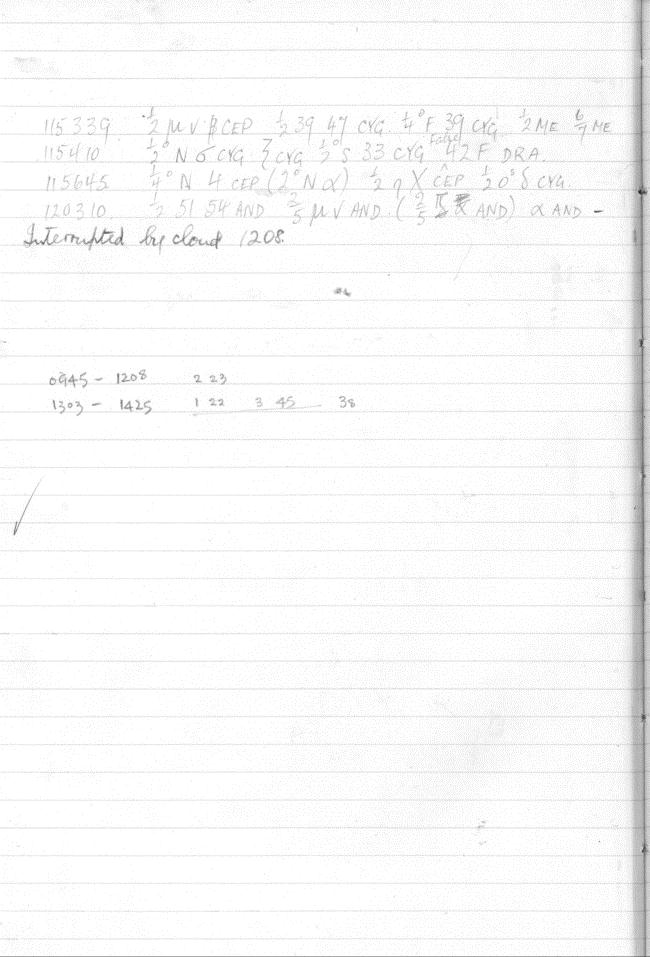 115339 ½ μ ν β CEP ½ 39 47 CYG ¼° F 39 CYG ½ ME 6/7 ME
115410 ½° N σ CYG ξ CYG ½° S 33 CYG 42 F DRA.
115645 ¼° N 4 CEP (2° N α) ½ η X CEP ½ 0° δ CYG.
120310. ½ 51 54 AND ⅗ μ ν AND. (⅗ AND) α AND –
Interrupted by cloud 1208.
0945 – 1208 2 23
1303 – 1425 1 22 3 45 38